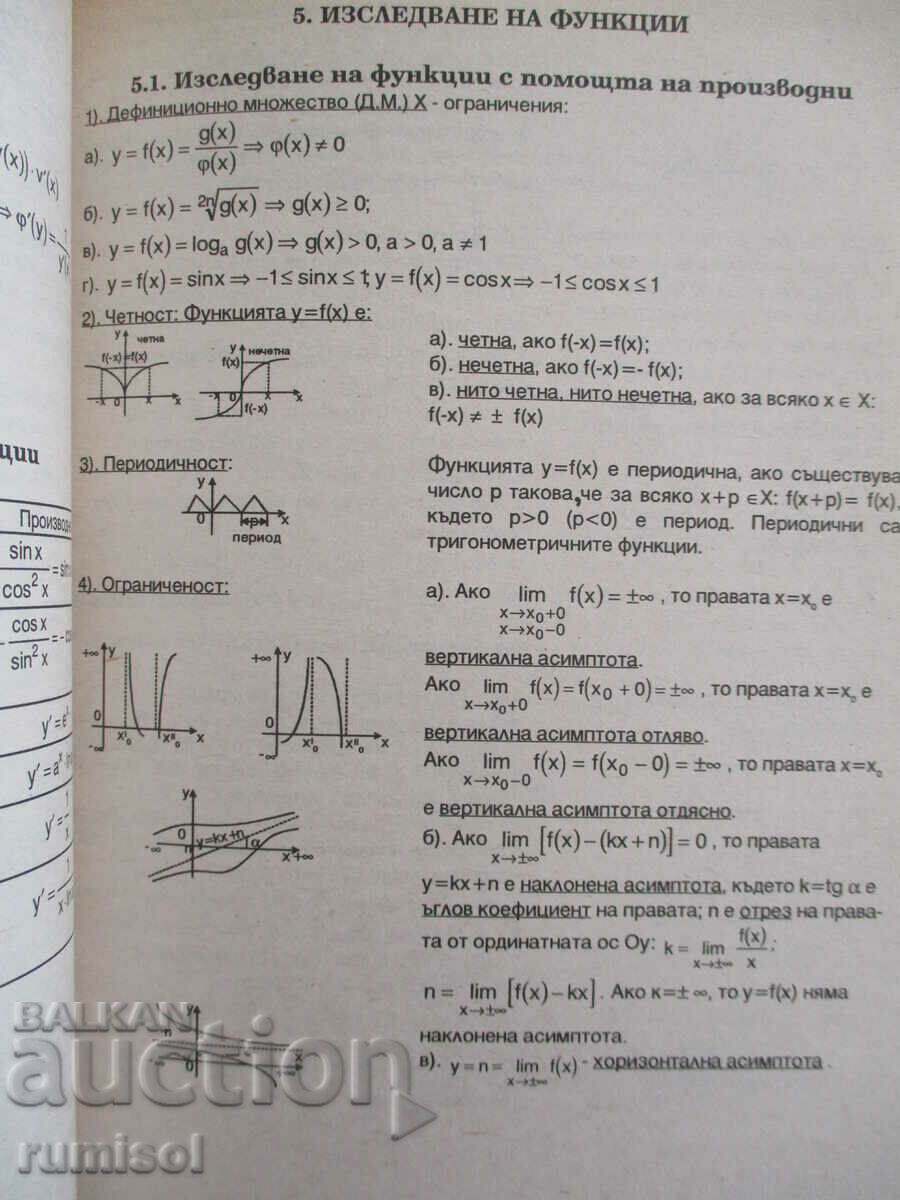 5. ИЗСЛЕДВАНЕ НА ФУНКЦИИ
5.1. Изследване на функции с помощта на производни
1). Дефиниционно множество (Д.М.) X - ограничения:
а). y = f(x) = g(x)/φ(x) ⇒ φ(x) ≠ 0
б). y = f(x) = ²ⁿ√g(x) ⇒ g(x) ≥ 0;
в). y = f(x) = logₐ g(x) ⇒ g(x) > 0, a > 0, a ≠ 1
г). y = f(x) = sinx ⇒ −1 ≤ sinx ≤ 1, y = f(x) = cosx ⇒ −1 ≤ cosx ≤ 1
2). Четност: Функцията y=f(x) е:
y четна
f(-x)=f(x)
-x 0 x x
y нечетна
f(x)
-x 0 x x
f(-x)
а). четна, ако f(-x)=f(x);
б). нечетна, ако f(-x)=- f(x);
в). нито четна, нито нечетна, ако за всяко x ∈ X:
f(-x) ≠ ± f(x)
3). Периодичност:
y
0 p x
период
Функцията y=f(x) е периодична, ако съществува
число p такова,че за всяко x+p ∈X: f(x+p)= f(x),
където p>0 (p<0) е период. Периодични са
тригонометричните функции.
4). Ограниченост:
+∞ y
0
-∞ x₀ᴵ x₀ᴵᴵ x
+∞ y
0
-∞ x₀ᴵ x₀ᴵᴵ x
а). Ако lim f(x) = ±∞ , то правата x=x₀ е
x→x₀+0
x→x₀−0
вертикална асимптота.
Ако lim f(x) = f(x₀ + 0) = ±∞ , то правата x=x₀ е
x→x₀+0
вертикална асимптота отляво.
Ако lim f(x) = f(x₀ − 0) = ±∞ , то правата x=x₀
x→x₀−0
е вертикална асимптота отдясно.
y
0 y=kx+n α
-∞ n x +∞
б). Ако lim [f(x) − (kx + n)] = 0 , то правата
x→±∞
y=kx+n е наклонена асимптота, където k=tg α е
ъглов коефициент на правата; n е отрез на права-
та от ординатната ос Oy: k = lim f(x)/x ;
x→±∞
n = lim [f(x) − kx] . Ако к=± ∞, то y=f(x) няма
x→±∞
наклонена асимптота.
y
n
x
-∞ 0 +∞
в). y = n = lim f(x) - хоризонтална асимптота .
x→±∞
'(x)) · v'(x)
⇒ φ'(y) =
ции
sin x
cos² x
cos x
sin² x
BALKAN
auction
rumisol